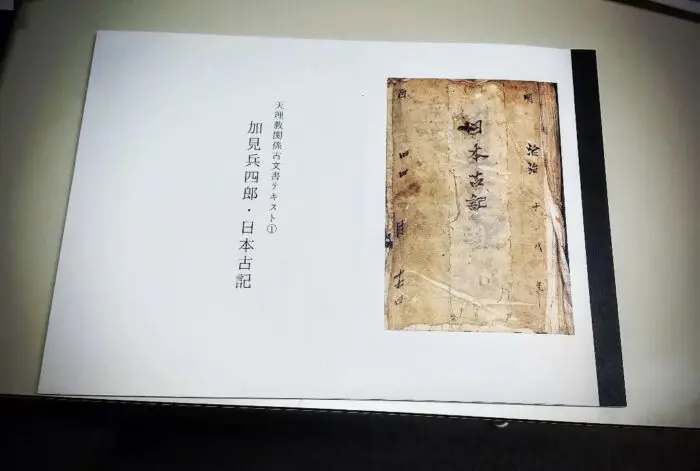 天理教関係古文書テキスト①
加見兵四郎・日本古記
明治十八年
日本古記
酉四月吉日